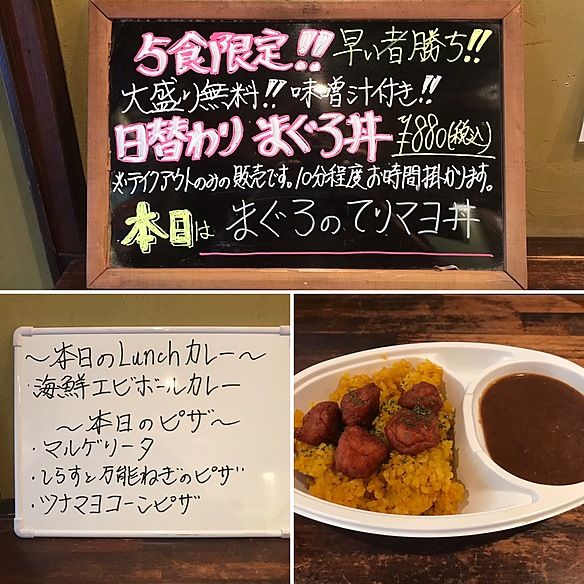 5食限定!! 早い者勝ち!!
大盛り無料!! 味噌汁付き!!
日替わり まぐろ丼 ¥880(税込)
※テイクアウトのみの販売です。10分程度お時間掛かります。
本日は まぐろのてりマヨ丼
〜本日のLunchカレー〜
・海鮮エビボールカレー
〜本日のピザ〜
・マルゲリータ
・しらすと万能ねぎのピザ
・ツナマヨコーンピザ